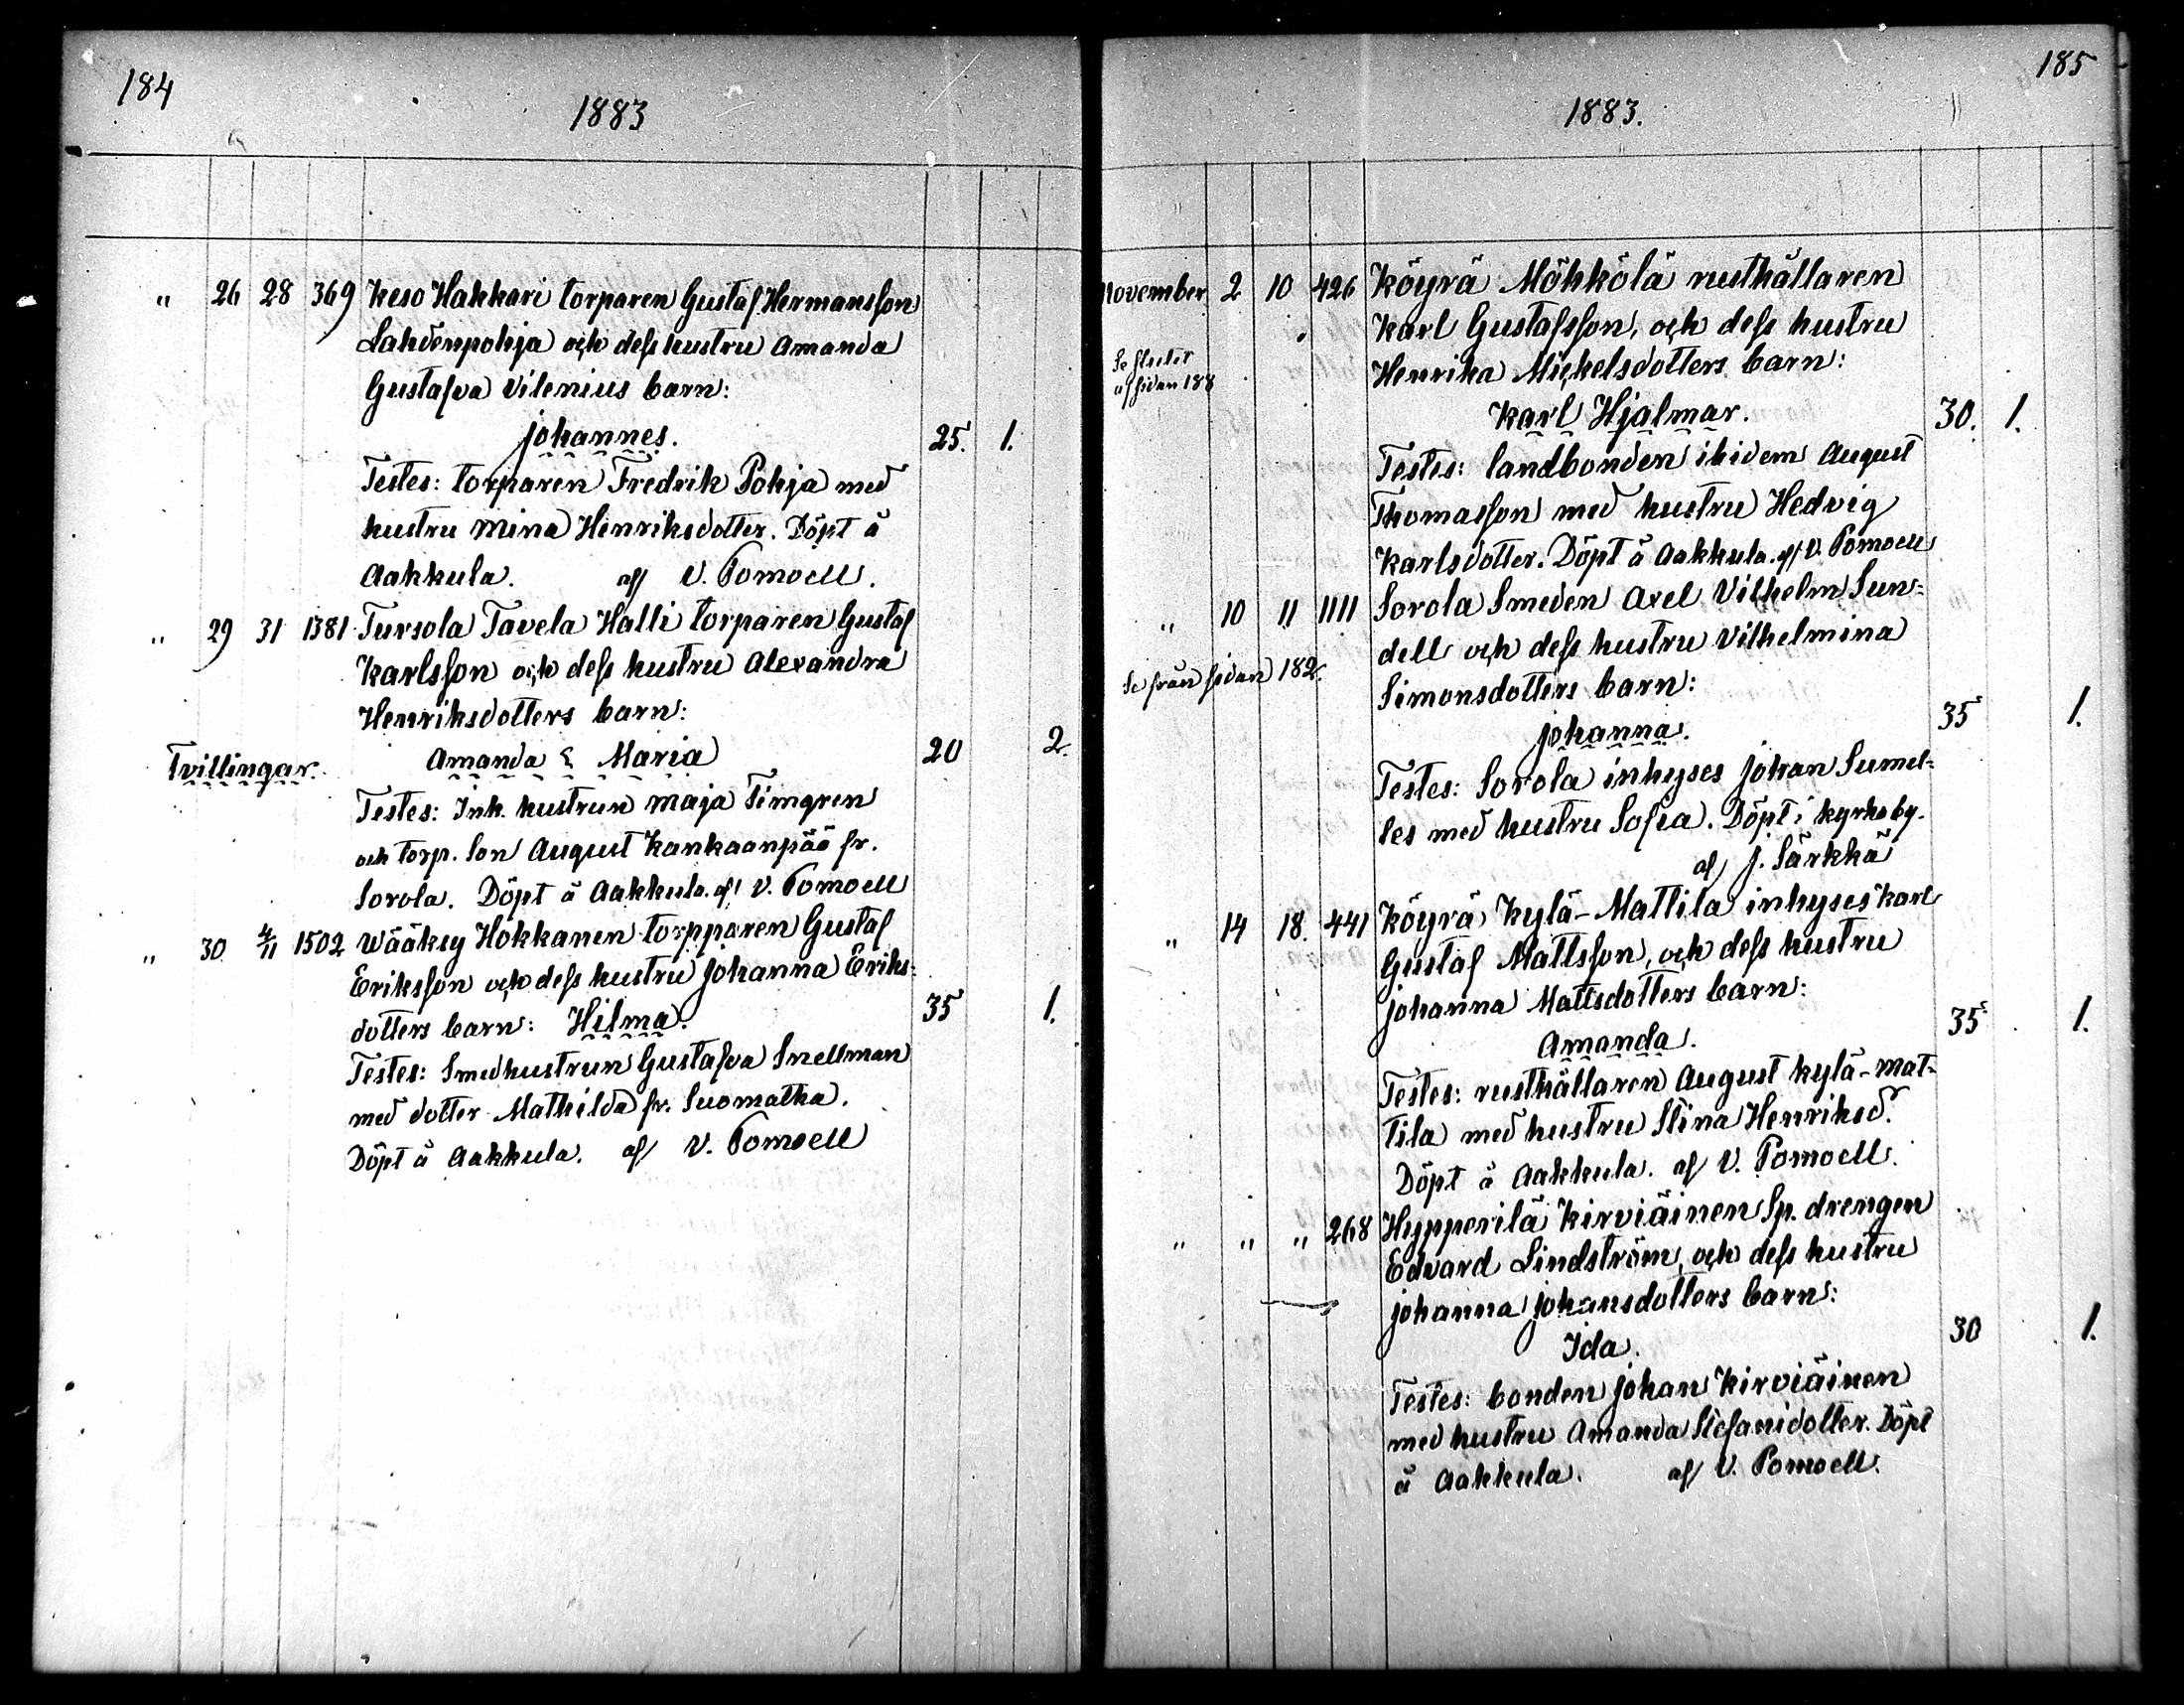 184
1883
" 26 28 369 Keso Hakkari torparen Gustaf Hermansson
Lahdenpohja och dess hustru Amanda
Gustafva Vilenius barn:
Johannes. 25. 1.
Testes: torparen Fredrik Pohja med
hustru Mina Hinriksdotter. Döpt å
Aakkula. af V. Pomoell.
" 29 31 1381 Tursola Tavela Halli torparen Gustaf
Karlsson och dess hustru Alexandra
Henriksdotters barn:
Tvillingar. Amanda & Maria 20 2.
Testes: Inh. hustrun Maja Timgren
och torp. son August Kankaanpää fr.
Sorola. Döpt å Aakkula. af V. Pomoell
" 30 4/11 1502 Wääksy Hokkanen torpparen Gustaf
Eriksson och dess hustru Johanna Eriks-
dotters barn: Hilma. 35 1.
Testes: Smedhustrun Gustafva Snellman
med dotter Mathilda fr. Suomatka.
Döpt å Aakkula. af V. Pomoell
185
1883.
November 2 10 426 Köyrä Möhkölä rusthållaren
Karl Gustafsson, och dess hustru
Se slutet
af sidan 188
Henrika Mickelsdotters barn:
Karl Hjalmar. 30. 1.
Testes: landbonden ibidem August
Thomasson med hustru Hedvig
Karlsdotter. Döpt å Aakkula. af V. Pomoell
" 10 11 1111 Sorola Smeden Axel Vilhelm Sun-
dell och dess hustru Vilhelmina
Se från sidan 182.
Simonsdotters barn:
Johanna. 35 1.
Testes: Sorola inhyses Johan Sumel-
les med hustru Sofia. Döpt i kyrkoby.
af J. Särkkä
" 14 18. 441 Köyrä Kylä-Mattila inhyses karl
Gustaf Mattsson, och dess hustru
Johanna Mattsdotters barn:
Amanda. 35 1.
Testes: rusthållaren August Kylä-Mat-
tila med hustru Stina Henriksd.
Döpt å Aakkula. af V. Pomoell.
" " " 268 Hypperilä Kirviäinen Sp. drengen
Edvard Lindström, och dess hustru
Johanna Johansdotters barn:
Ida. 30 1.
Testes: bonden Johan Kirviäinen
med hustru Amanda Stefanidotter. Döpt
å Aakkula. af V. Pomoell.